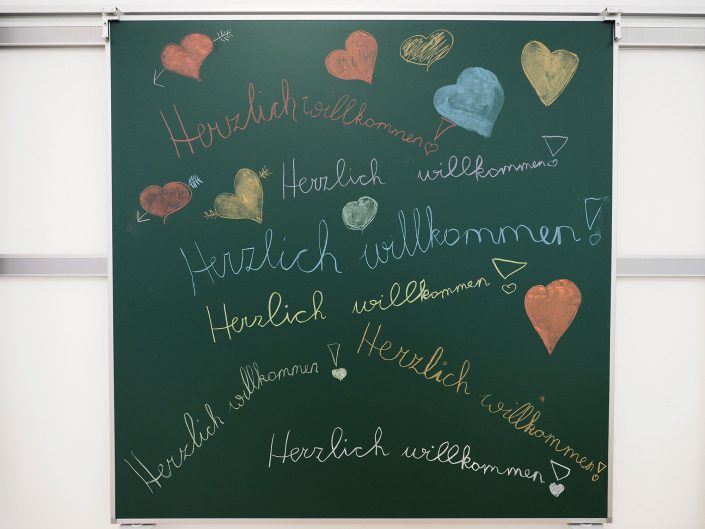 Herzlich willkommen!
Herzlich willkommen!
Herzlich willkommen!
Herzlich willkommen!
Herzlich willkommen!
Herzlich willkommen!
Herzlich willkommen!